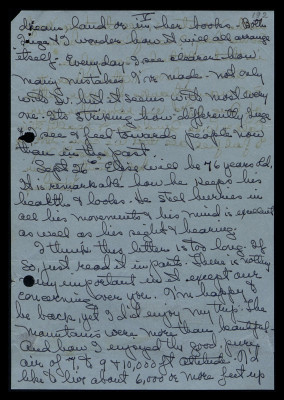 V
dreams, land or in her books. Both
Inga & I wonder how it will all arrange
itself. Everyday I see clearer how
many mistakes I've made - not only
with Sv. but it seems with most every
one. Its striking how differently Inga
& I see & feel towards people now
than in the past.
Sept 26th will be 76 years old.
It is remarkable how he keeps his
health & looks. He still hurries in
all his movements & his mind is excellent
as well as his sight & hearing.
I think this letter is too long. If
so, just read it in parts. There is nothing
very important in it except our
concerning over you. I'm happy to
be back, yet I did enjoy my trip. The
mountains were more than beautiful -
and how I enjoyed the good, pure
air of 7, to 9 & 10,000 ft altitude. I'd
like to live about 6,000 or more feet up